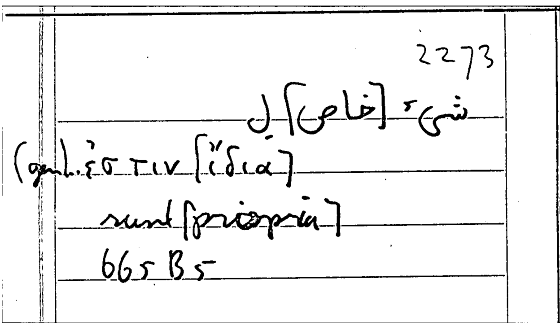 2273
شيء [خاص] ل
(gen.). ἐστιν [ἴδια]
sunt [propria]
665 B 5